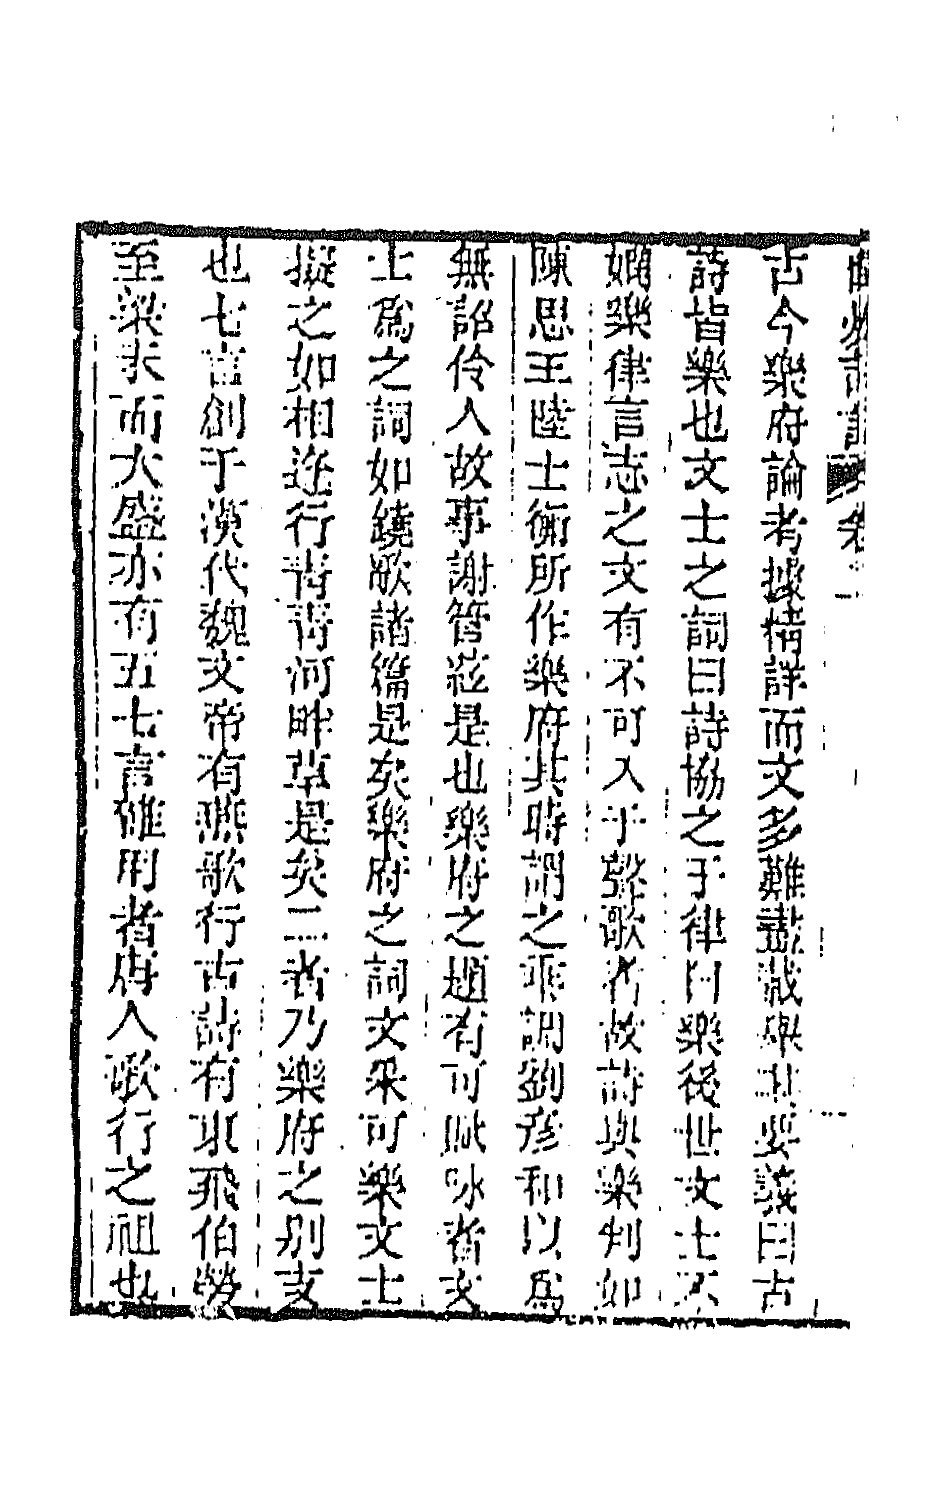 詩話卷
古今樂府論考據精詳而文多難盡載舉其要義曰古
詩皆樂也文士之詞曰詩協之于律曰樂後世文士不
嫻樂律言志之文有不可入于聲歌者故詩與樂判如
陳思王陸士衡所作樂府其時謂之乖調劉彥和以爲
無詔伶人故事謝管絃是也樂府之題有可賦咏者文
士爲之詞如鐃歌諸篇是矣樂府之詞文采可樂文士
擬之如相逢行青青河畔草是矣二者乃樂府之别支
也七言創于漢代魏文帝有燕歌行古詩有東飛伯勞
至梁末而大盛亦有五七言雜用者唐人歌行之祖也